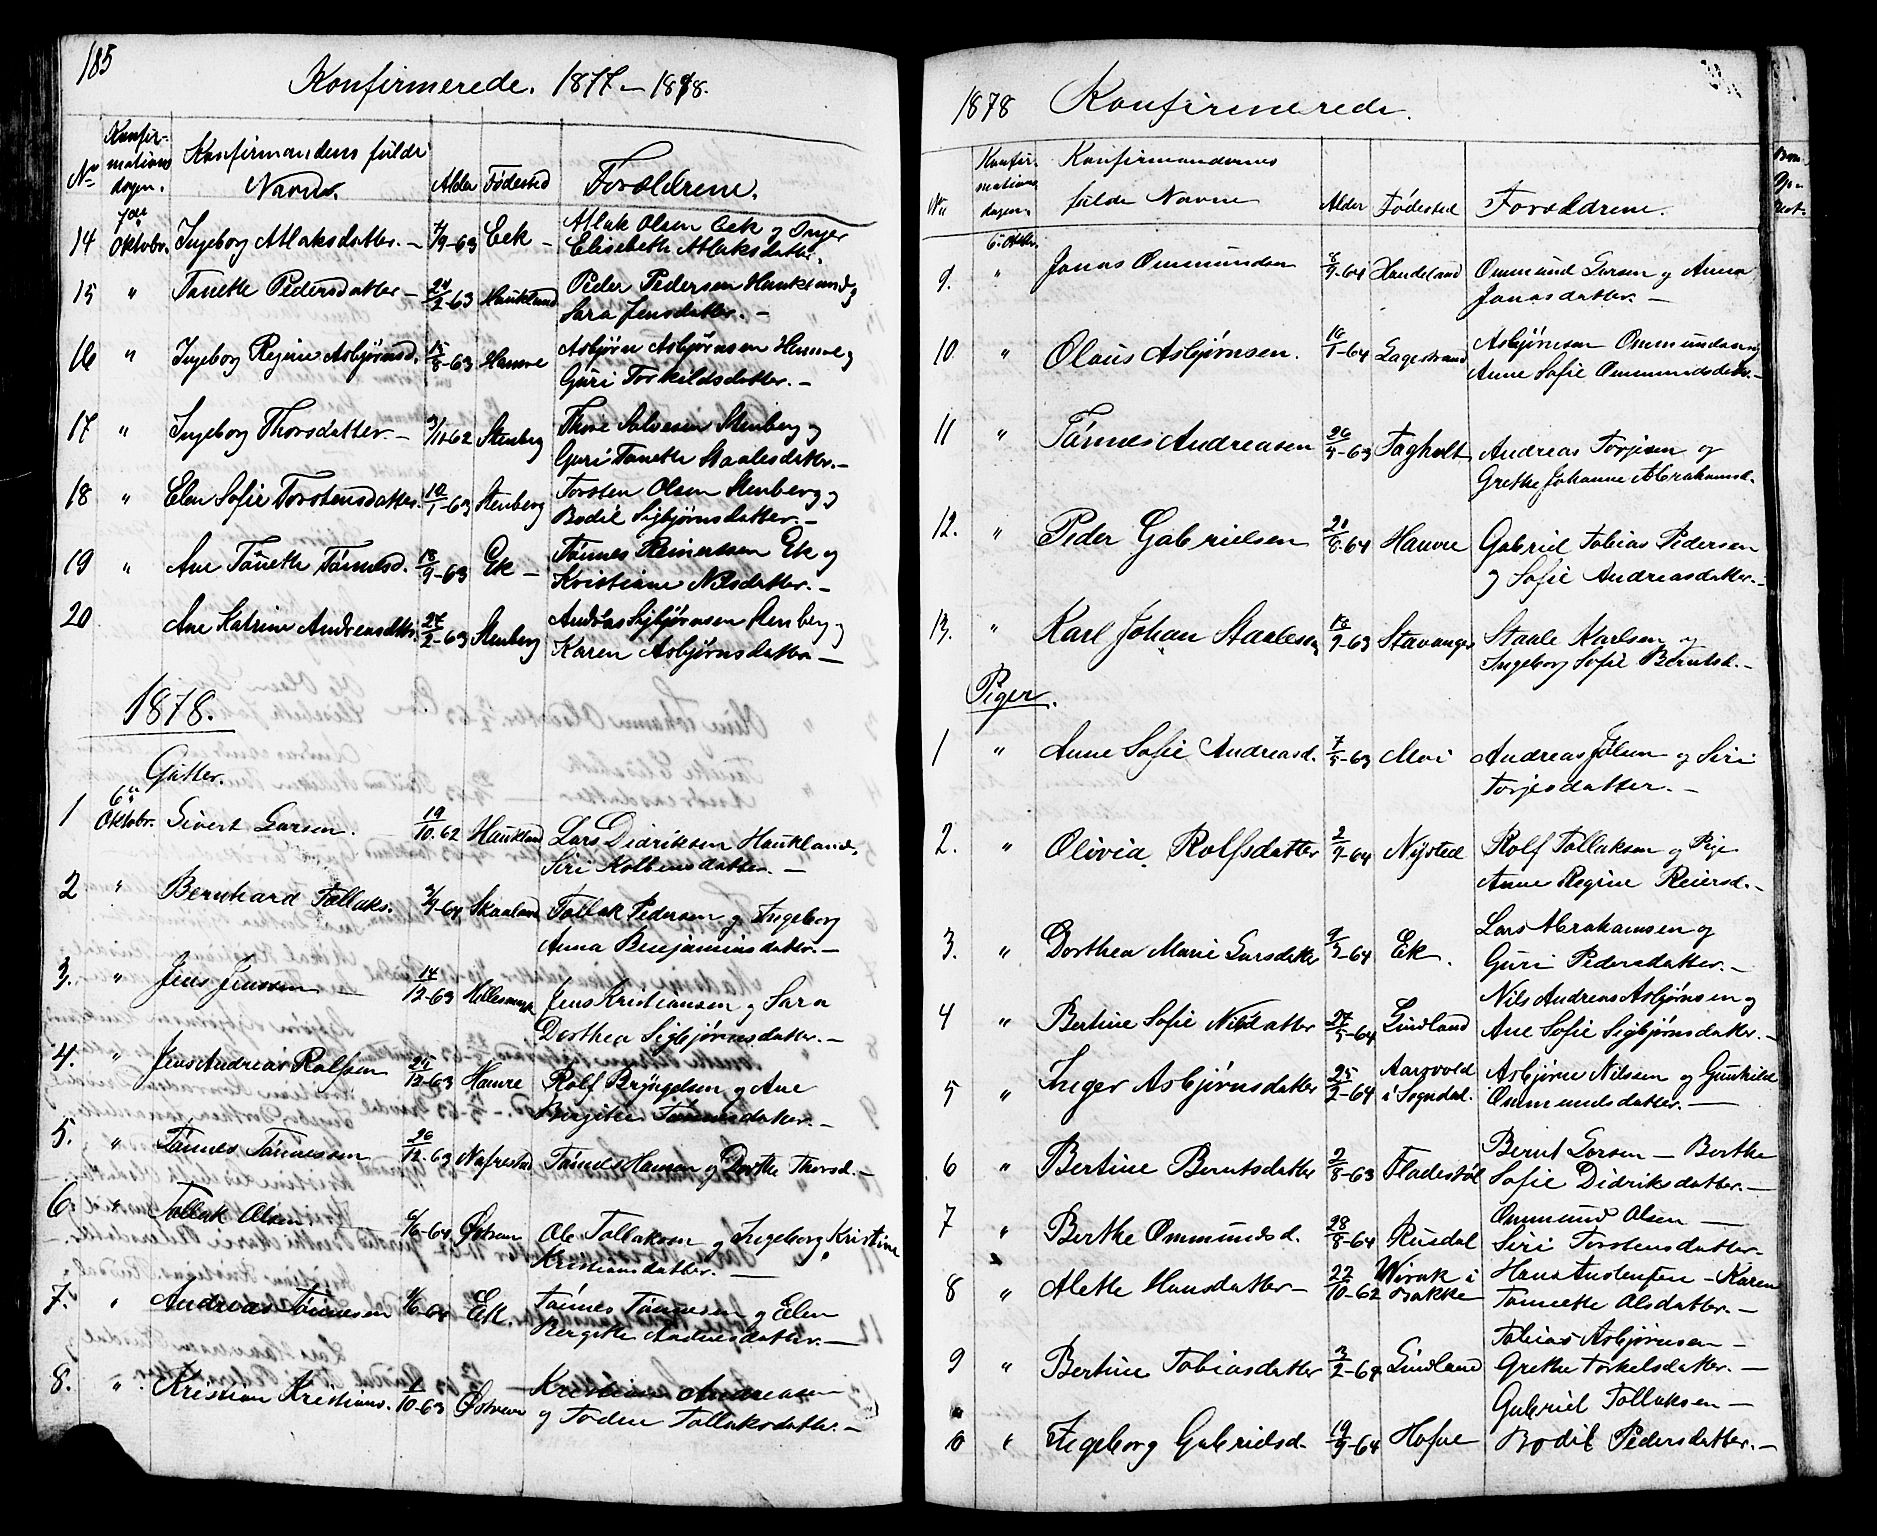 185
Konfirmerede. 1877 - 1878.
No Konfirmations dagen. Konfirmandens fulde Navne. Alder Fødested Forældrene.
14 7de Oktobr. Ingeborg Atlaksdatter. - 4/9-63 Eek - Atlak Olsen Eek og Inger
Elisabeth Atlaksdatter.
15 " Tanette Pedersdatter - 24/2-63 Haukland Peder Pedersen Haukland og
Sara Jensdatter. -
16 " Ingeborg Regine Asbjørnsd. 15/8-63 Hamre Asbjørn Asbjørnsen Hamre og
Guri Torkildsdatter. -
17 " Ingeborg Thorsdatter. - Stenberg Thore Salvesen Stenberg og
Guri Tanette Staalesdatter. -
18 " Elen Sofie Torstensdatter. 10/1-63 Stenberg Torsten Olsen Stenberg og
Bodil Sigbjørnsdatter. -
19 " Ane Tanette Tønnesd. 18/9-63 Ek - Tønnes Reinertsen Ek og
Kristiane Nilsdatter. -
20 Ane Katrine Andreasdtr. 27/2-63 Stenberg Andreas Sigbjørnsen Stenberg og
Karen Asbjørnsdatter -
1878.
Gutter.
1 6te Oktobr. Sivert Larsen. 19/10-62 Haukland Lars Didriksen Haukland,
Siri Kolbensdatter. -
2 " Bernhard Tollaks. Skaaland Tollak Pedersen og Ingeborg
Anna Benjaminsdatter. -
3. " Jens Jenssen - 14/12-63 Jens Kristiansen og Sara
Dorthea Sigbjørnsdatter. -
4. " Jens Andreas Rolfsen 25/12-63 Hamre Rolf Bryngelsen og Ane
Birgitte Tønnesdatter. -
5. " Tønnes Tønnessen 26/12-63 Nafrestad Tønnes Hansen og Dorthe Thorsd. -
6. " Tollak Olsen 6/6-64 Østrem Ole Tollaksen og Ingeborg Kristine
Kristiansdatter. -
7. " Andreas Tønnesen Eek. Tønnes Tønnesen og Elen
Bergitte Andreasdatter. -
8. " Kristian Kristians. 1/10-63 Østrem Kristian Andreasen
og Todne Tollaksdatter. -
1878 Konfirmerede.
No. Konfirmations dagen. Konfirmandernes fulde Navne Alder Fødested Forældrene.
9. 6te Oktbr. " Jonas Ommundsen 8/9-64 Haudeland Ommund Larsen og Anna
Jonasdatter. -
10. " Olaus Asbjørnsen. 16/7-64 Lagestrand Asbjørnsen Ommundsen og
Anne Sofie Ommundsdatter. -
11 " Tønnes Andreasen 26/5-63 Fagholt Andreas Torjesen og
Grethe Johanne Abrahamsd.
12. " Peder Gabrielsen 21/8-64 Hamre Gabriel Tobias Pedersen
og Sofie Andreasdatter. -
13. " Karl Johan Staalesen 18/9-63 Stavanger Staale Karlsen og
Ingeborg Sofie Berntsd. -
Piger.
1 " Anne Sofie Andreasd. 7/5-63 Moi Andreas Olsen og Siri
Torjesdatter. -
2. " Olivia Rolfsdatter 2/9-64 Nysted Rolf Tollaksen og
Anne Regine Reiersd. -
3. " Dorthea Marie Larsdatter 9/3-64 Ek. Lars Abrahamsen og
Guri Pedersdatter. -
4 " Bertine Sofie Nilsdatter 27/5-64 Lindland Nils Andreas Asbjørnsen og
Ane Sofie Sigbjørnsdatter. -
5 " Inger Asbjørnsdatter 25/2-64 Aarsvold i Sogndal. Asbjørn Nilssen og Gunhild
Ommundsdatter. -
6 " Bertine Berntsdatter 2/8-63 Fladestøl Bernt Larsen - Berthe
Sofie Didriksdatter. -
7 " Berthe Ommundsd. 28/8-64 Rusdal Ommund Olsen -
Siri Torstensdatter -
8 " Alette Hansdatter - 22/10-62 Wirak i Bakke Hans Austensen - Karen
Tanette Olsdatter. -
9 " Bertine Tobiasdatter 3/2-64 Lindland Tobias Asbjørnsen -
Grethe Torkelsdatter. -
10 " Ingeborg Gabrielsd. 19/9-64 Hofve Gabriel Tollaksen -
Bodil Pedersdatter. -